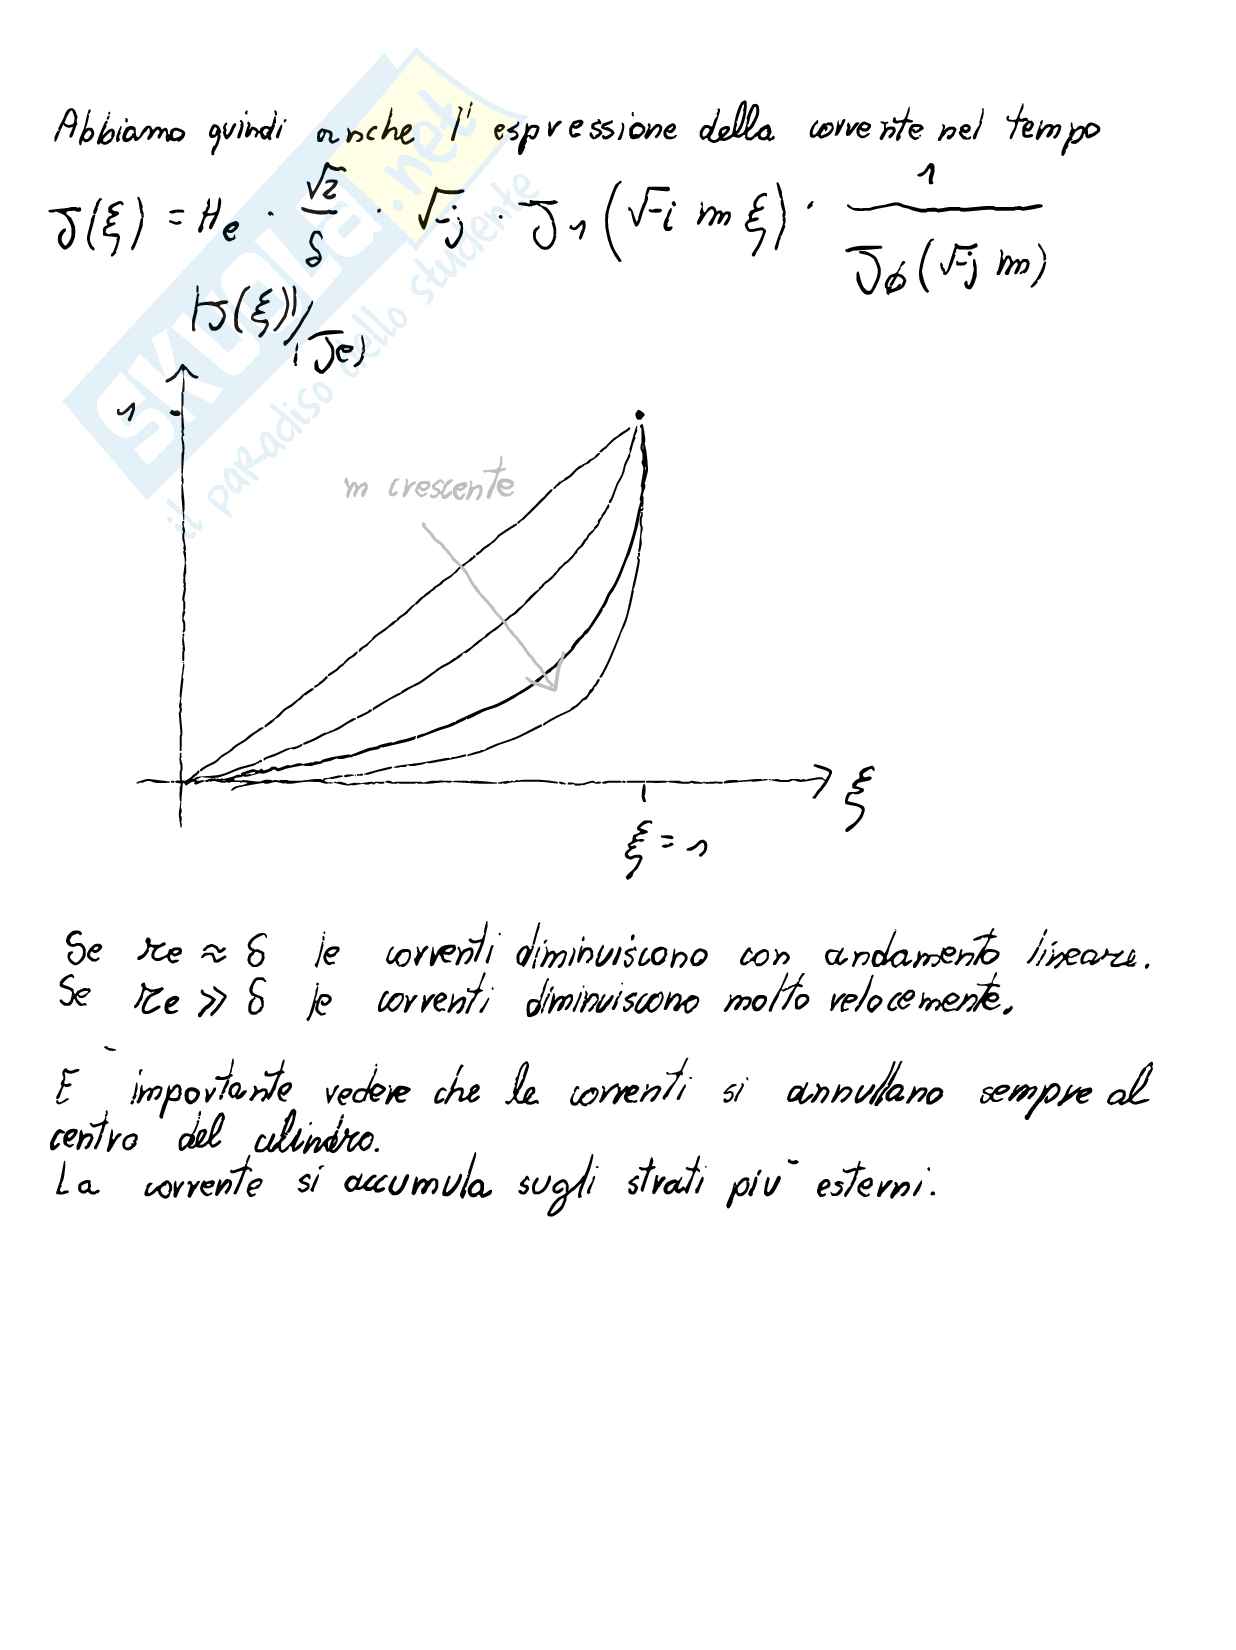 Abbiamo quindi anche l' espressione della corrente nel tempo
J(ξ) = He · √2/δ · √-j · J1 (√-i m ξ) · 1/Jø(√-j m)
|J(ξ)|/|Je|
1
m crescente
ξ
ξ = 1
Se re ≈ δ le correnti diminuiscono con andamento lineare.
Se re >> δ le correnti diminuiscono molto velocemente.
È importante vedere che le correnti si annullano sempre al
centro del cilindro.
La corrente si accumula sugli strati più esterni.
SKUOLA.net
il paradiso dello studente